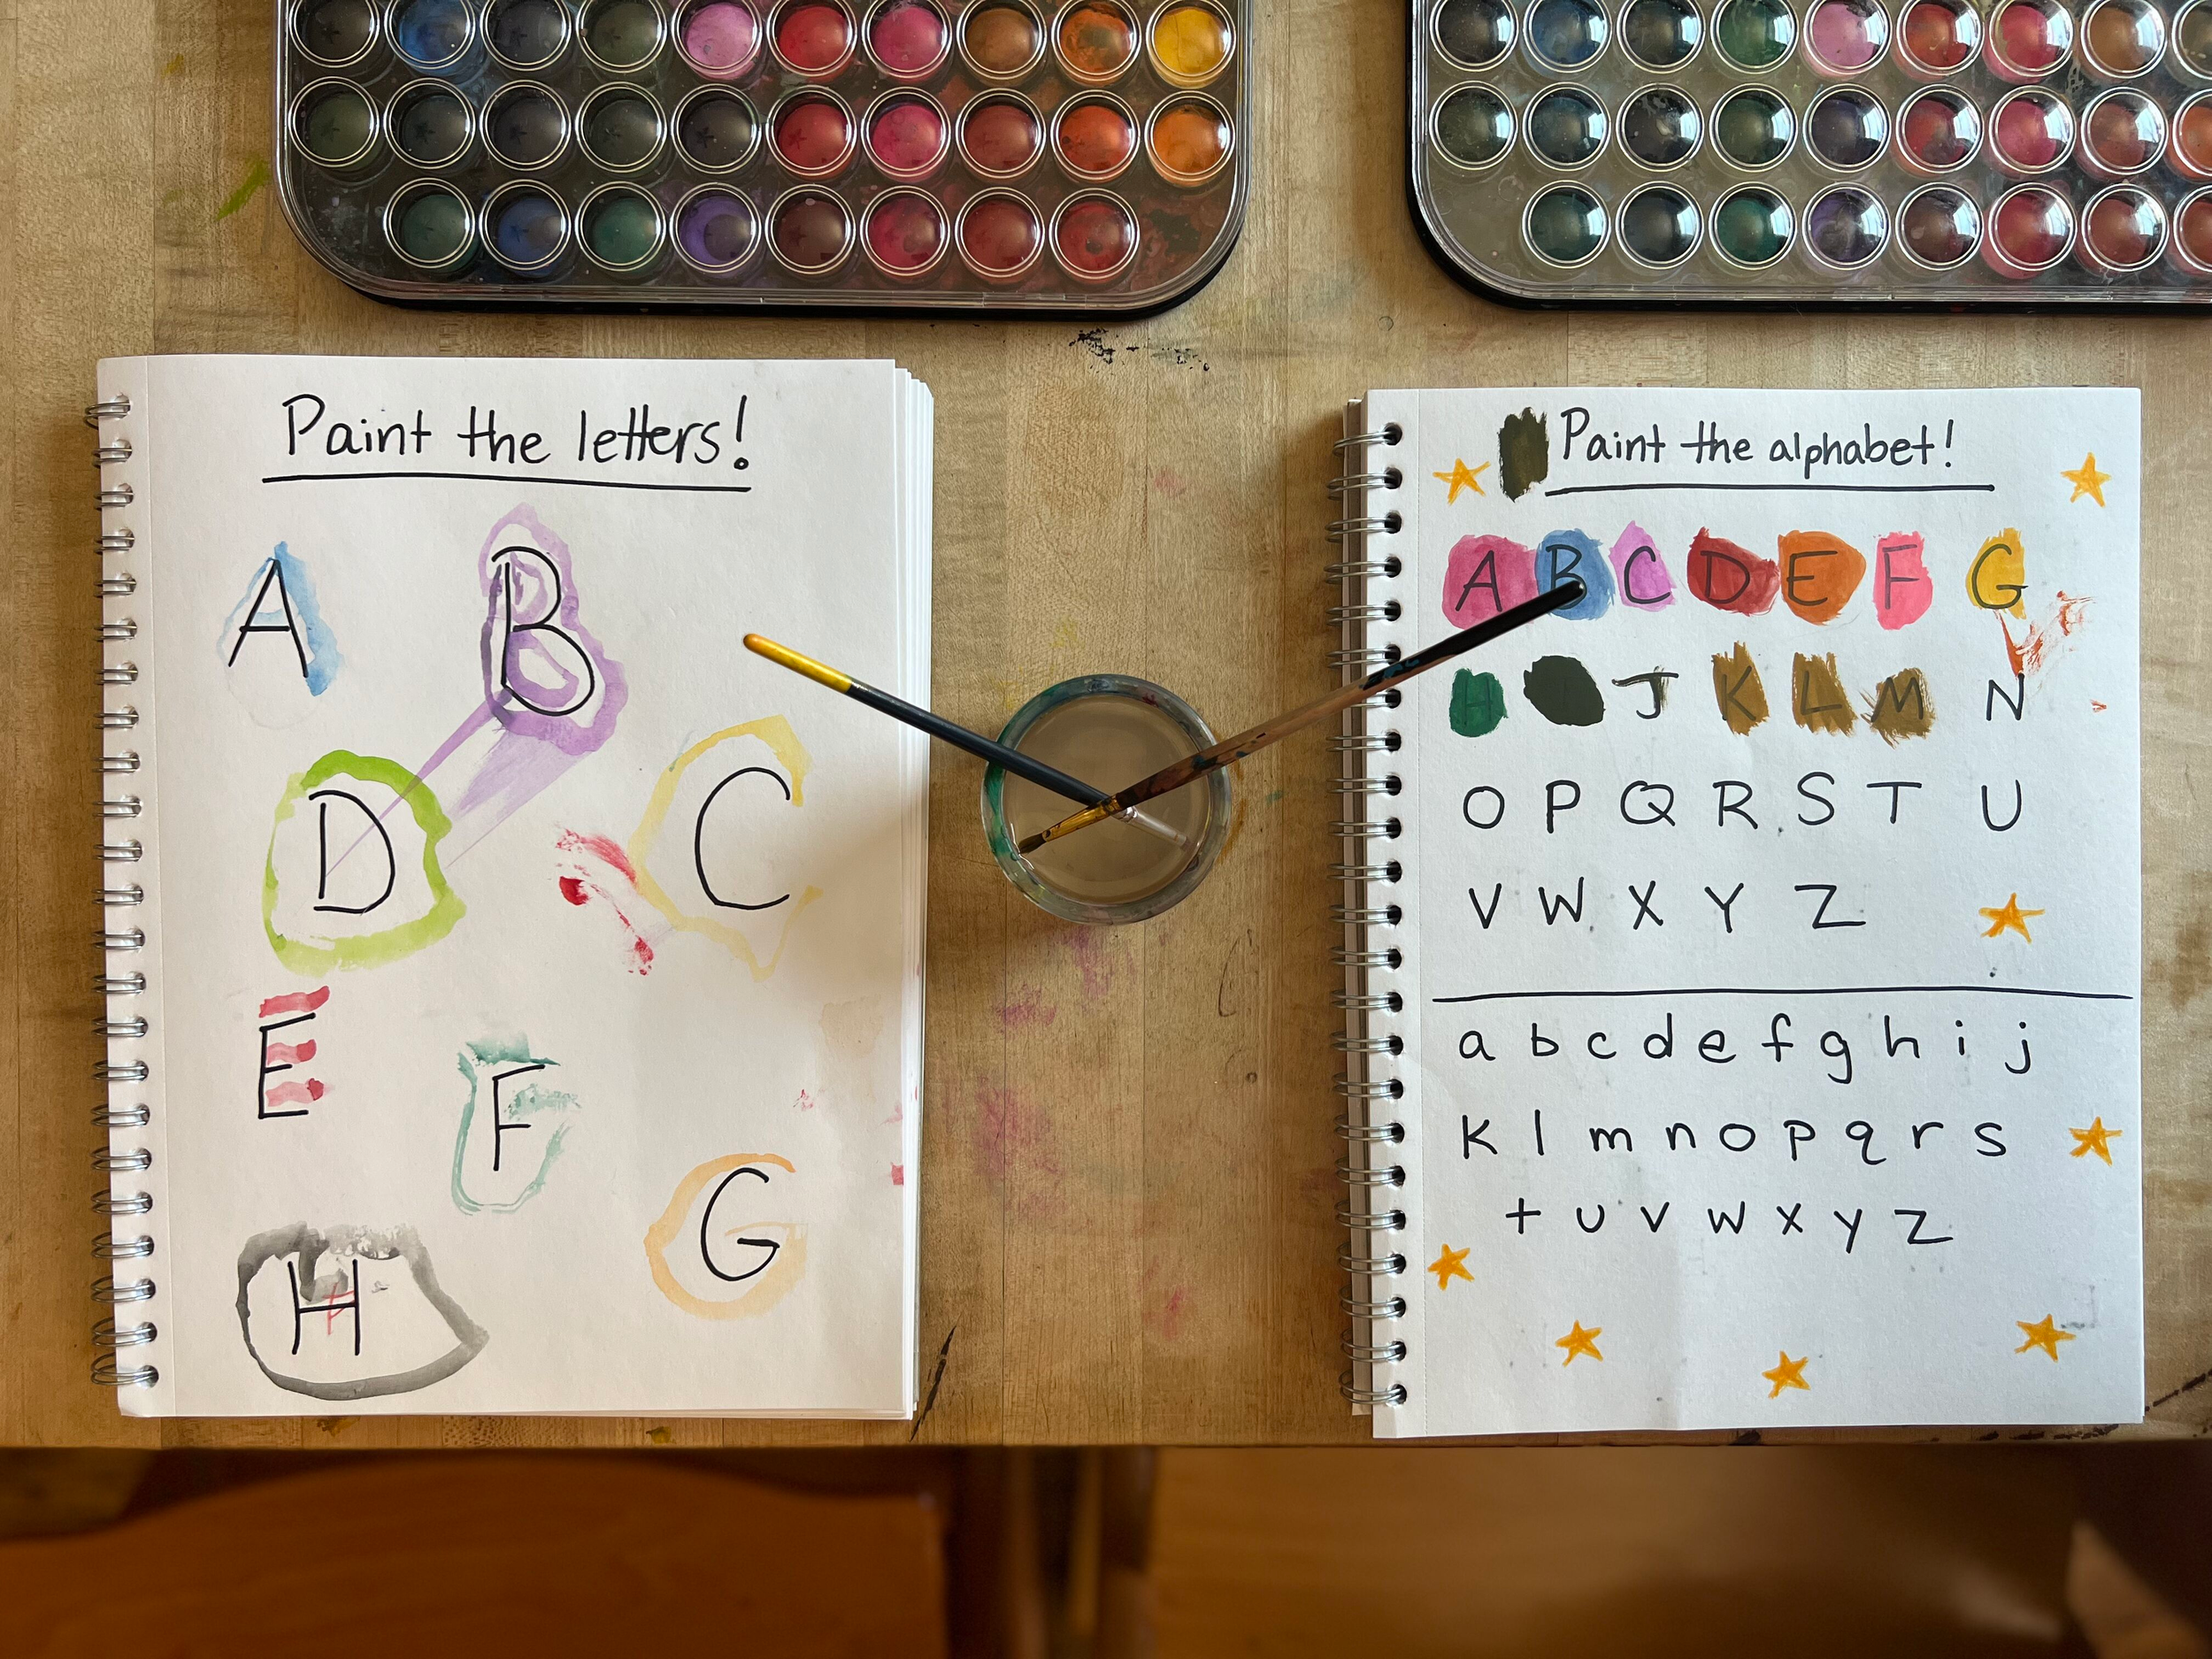 Paint the letters!
A B
D C
E
F
G
H
Paint the alphabet!
A B C D E F G
H J K L M N
O P Q R S T U
V W X Y Z
a b c d e f g h i j
k l m n o p q r s
t u v w x y z